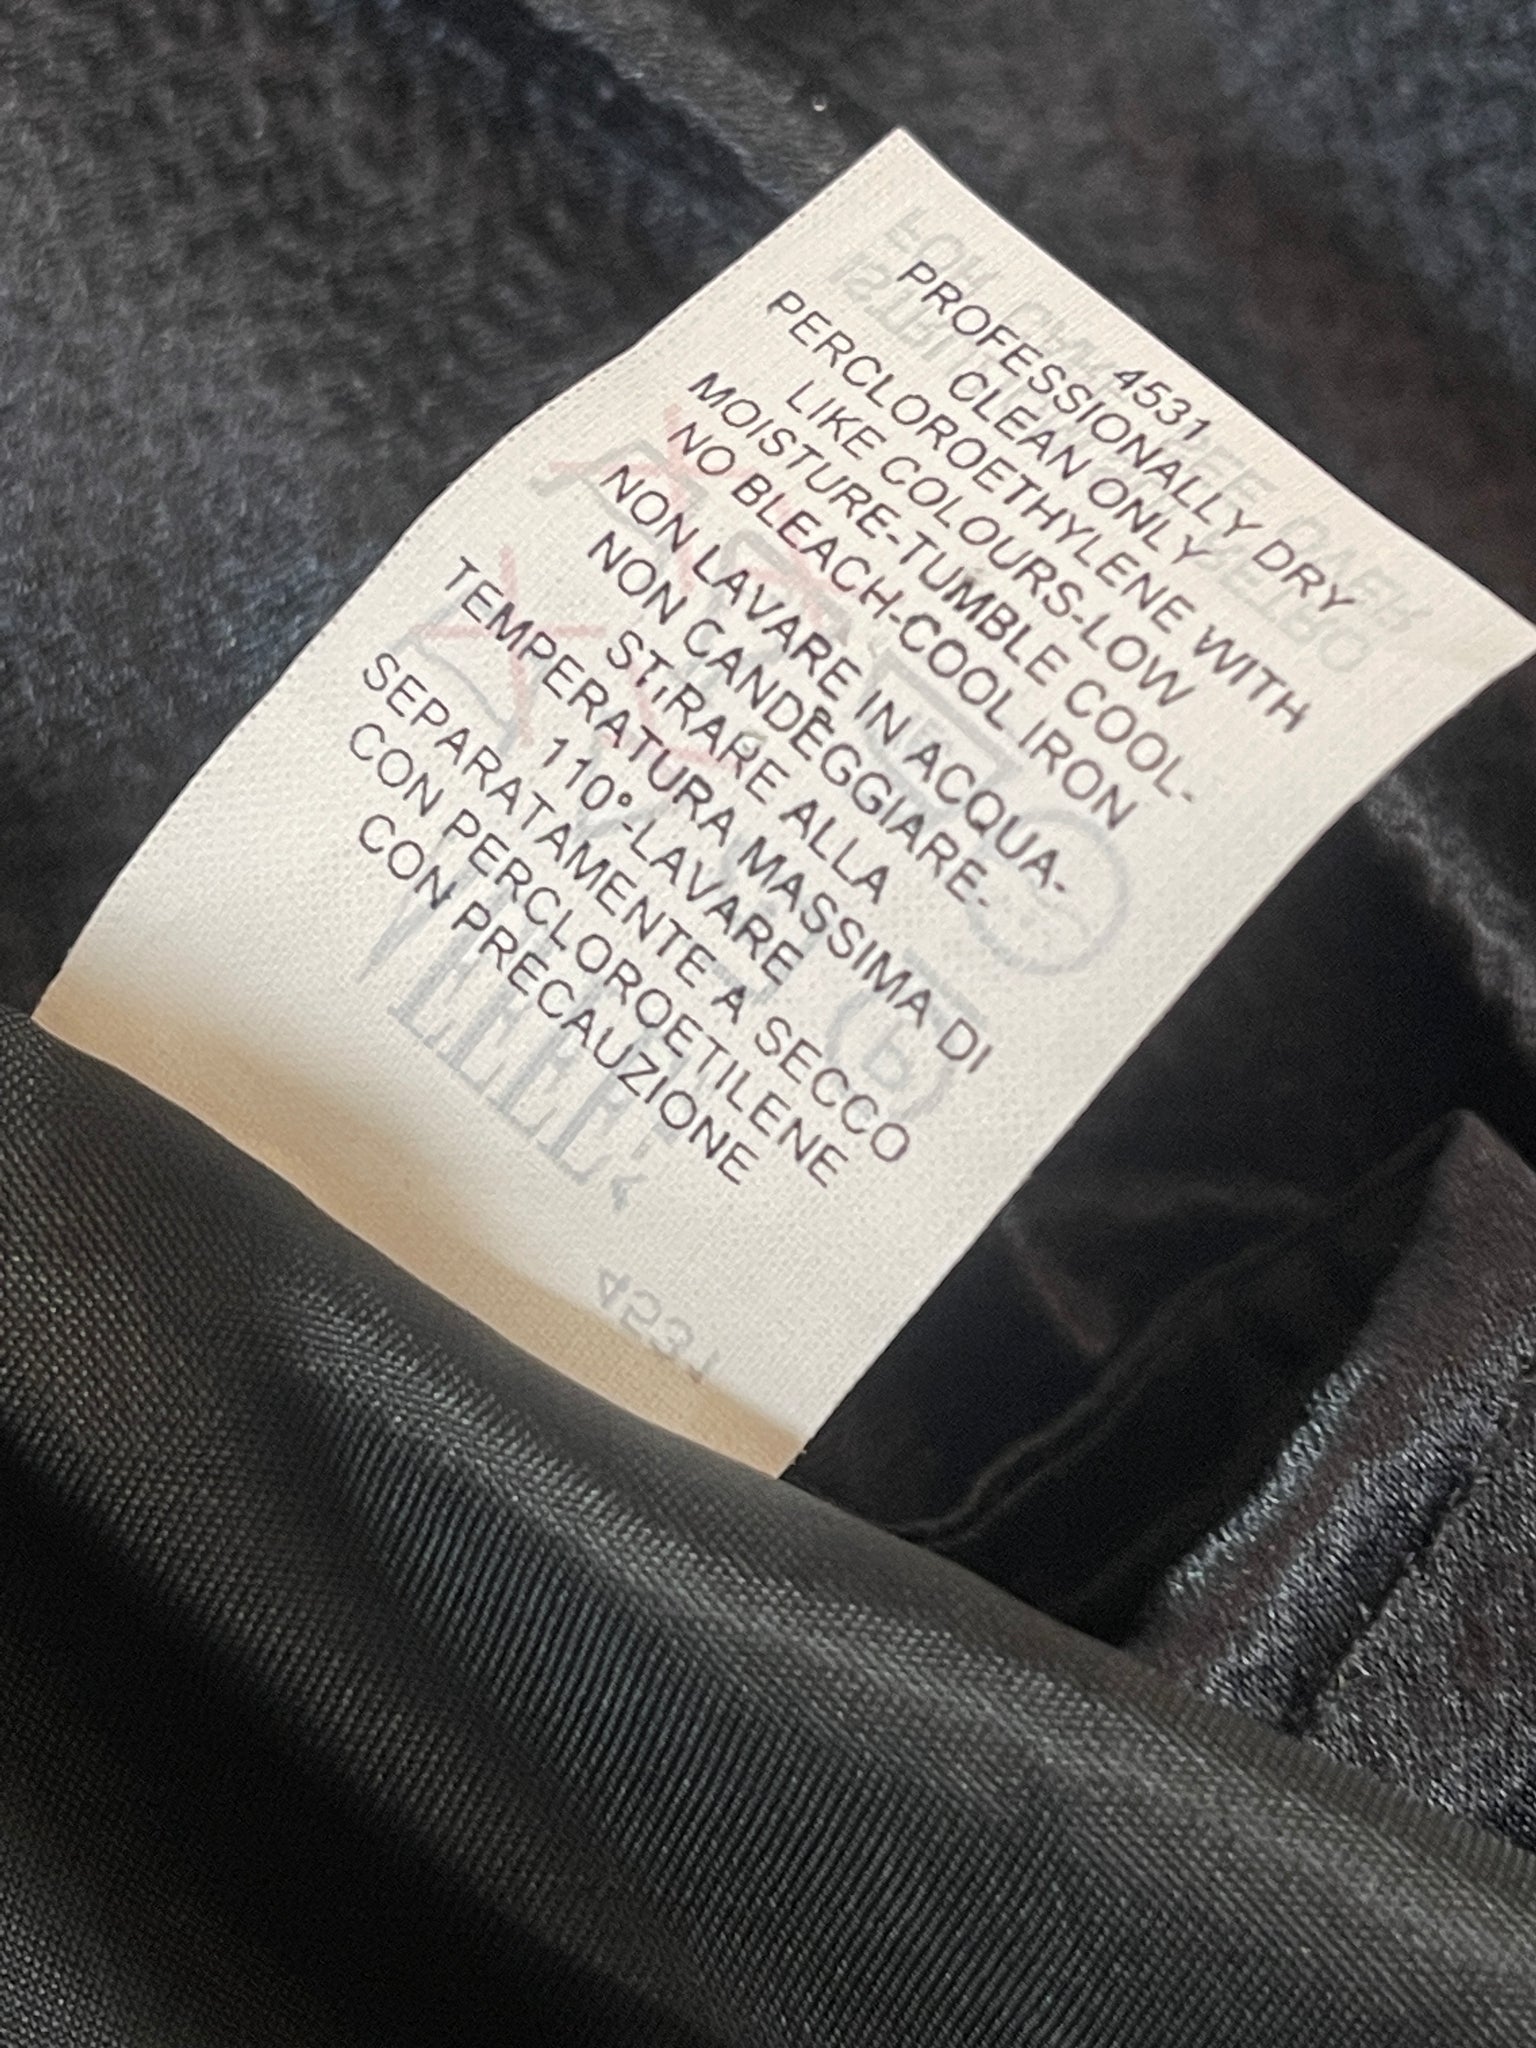 4531
PROFESSIONALLY DRY
CLEAN ONLY
PERCLOROETHYLENE WITH
LIKE COLOURS-LOW
MOISTURE-TUMBLE COOL-
NO BLEACH-COOL IRON
NON LAVARE IN ACQUA-
NON CANDEGGIARE-
STIRARE ALLA
TEMPERATURA MASSIMA DI
110°-LAVARE
SEPARATAMENTE A SECCO
CON PERCLOROETILENE
CON PRECAUZIONE
4531